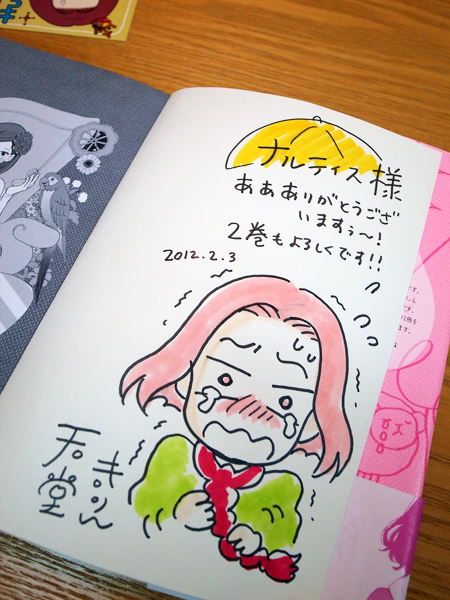 ナルティス様
あああありがとうござ
いますぅ〜!
2巻もよろしくです!!
2012.2.3
天堂
きりん